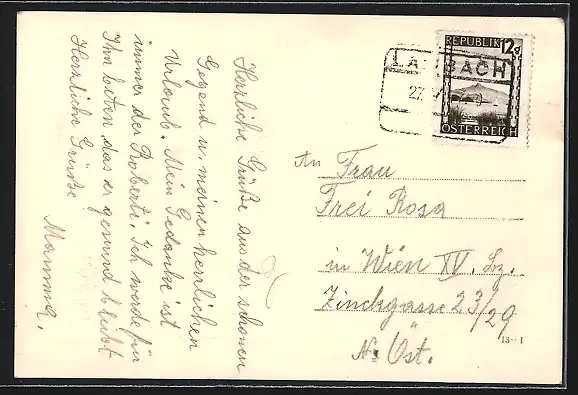 Herzliche Grüße aus der schönen
Gegend u. meinen herrlichen
Urlaub. Mein Gedanke ist
immer der Roberti. Ich werde für
Ihn beten, das er gesund bleibt
Herzliche Grüße
Mamma.
REPUBLIK 12g
LAMBACH
27. V
ÖSTERREICH
An Frau
Frei Rosa
in Wien XV. Bz.
Zinckgasse 23/29
N. Öst.